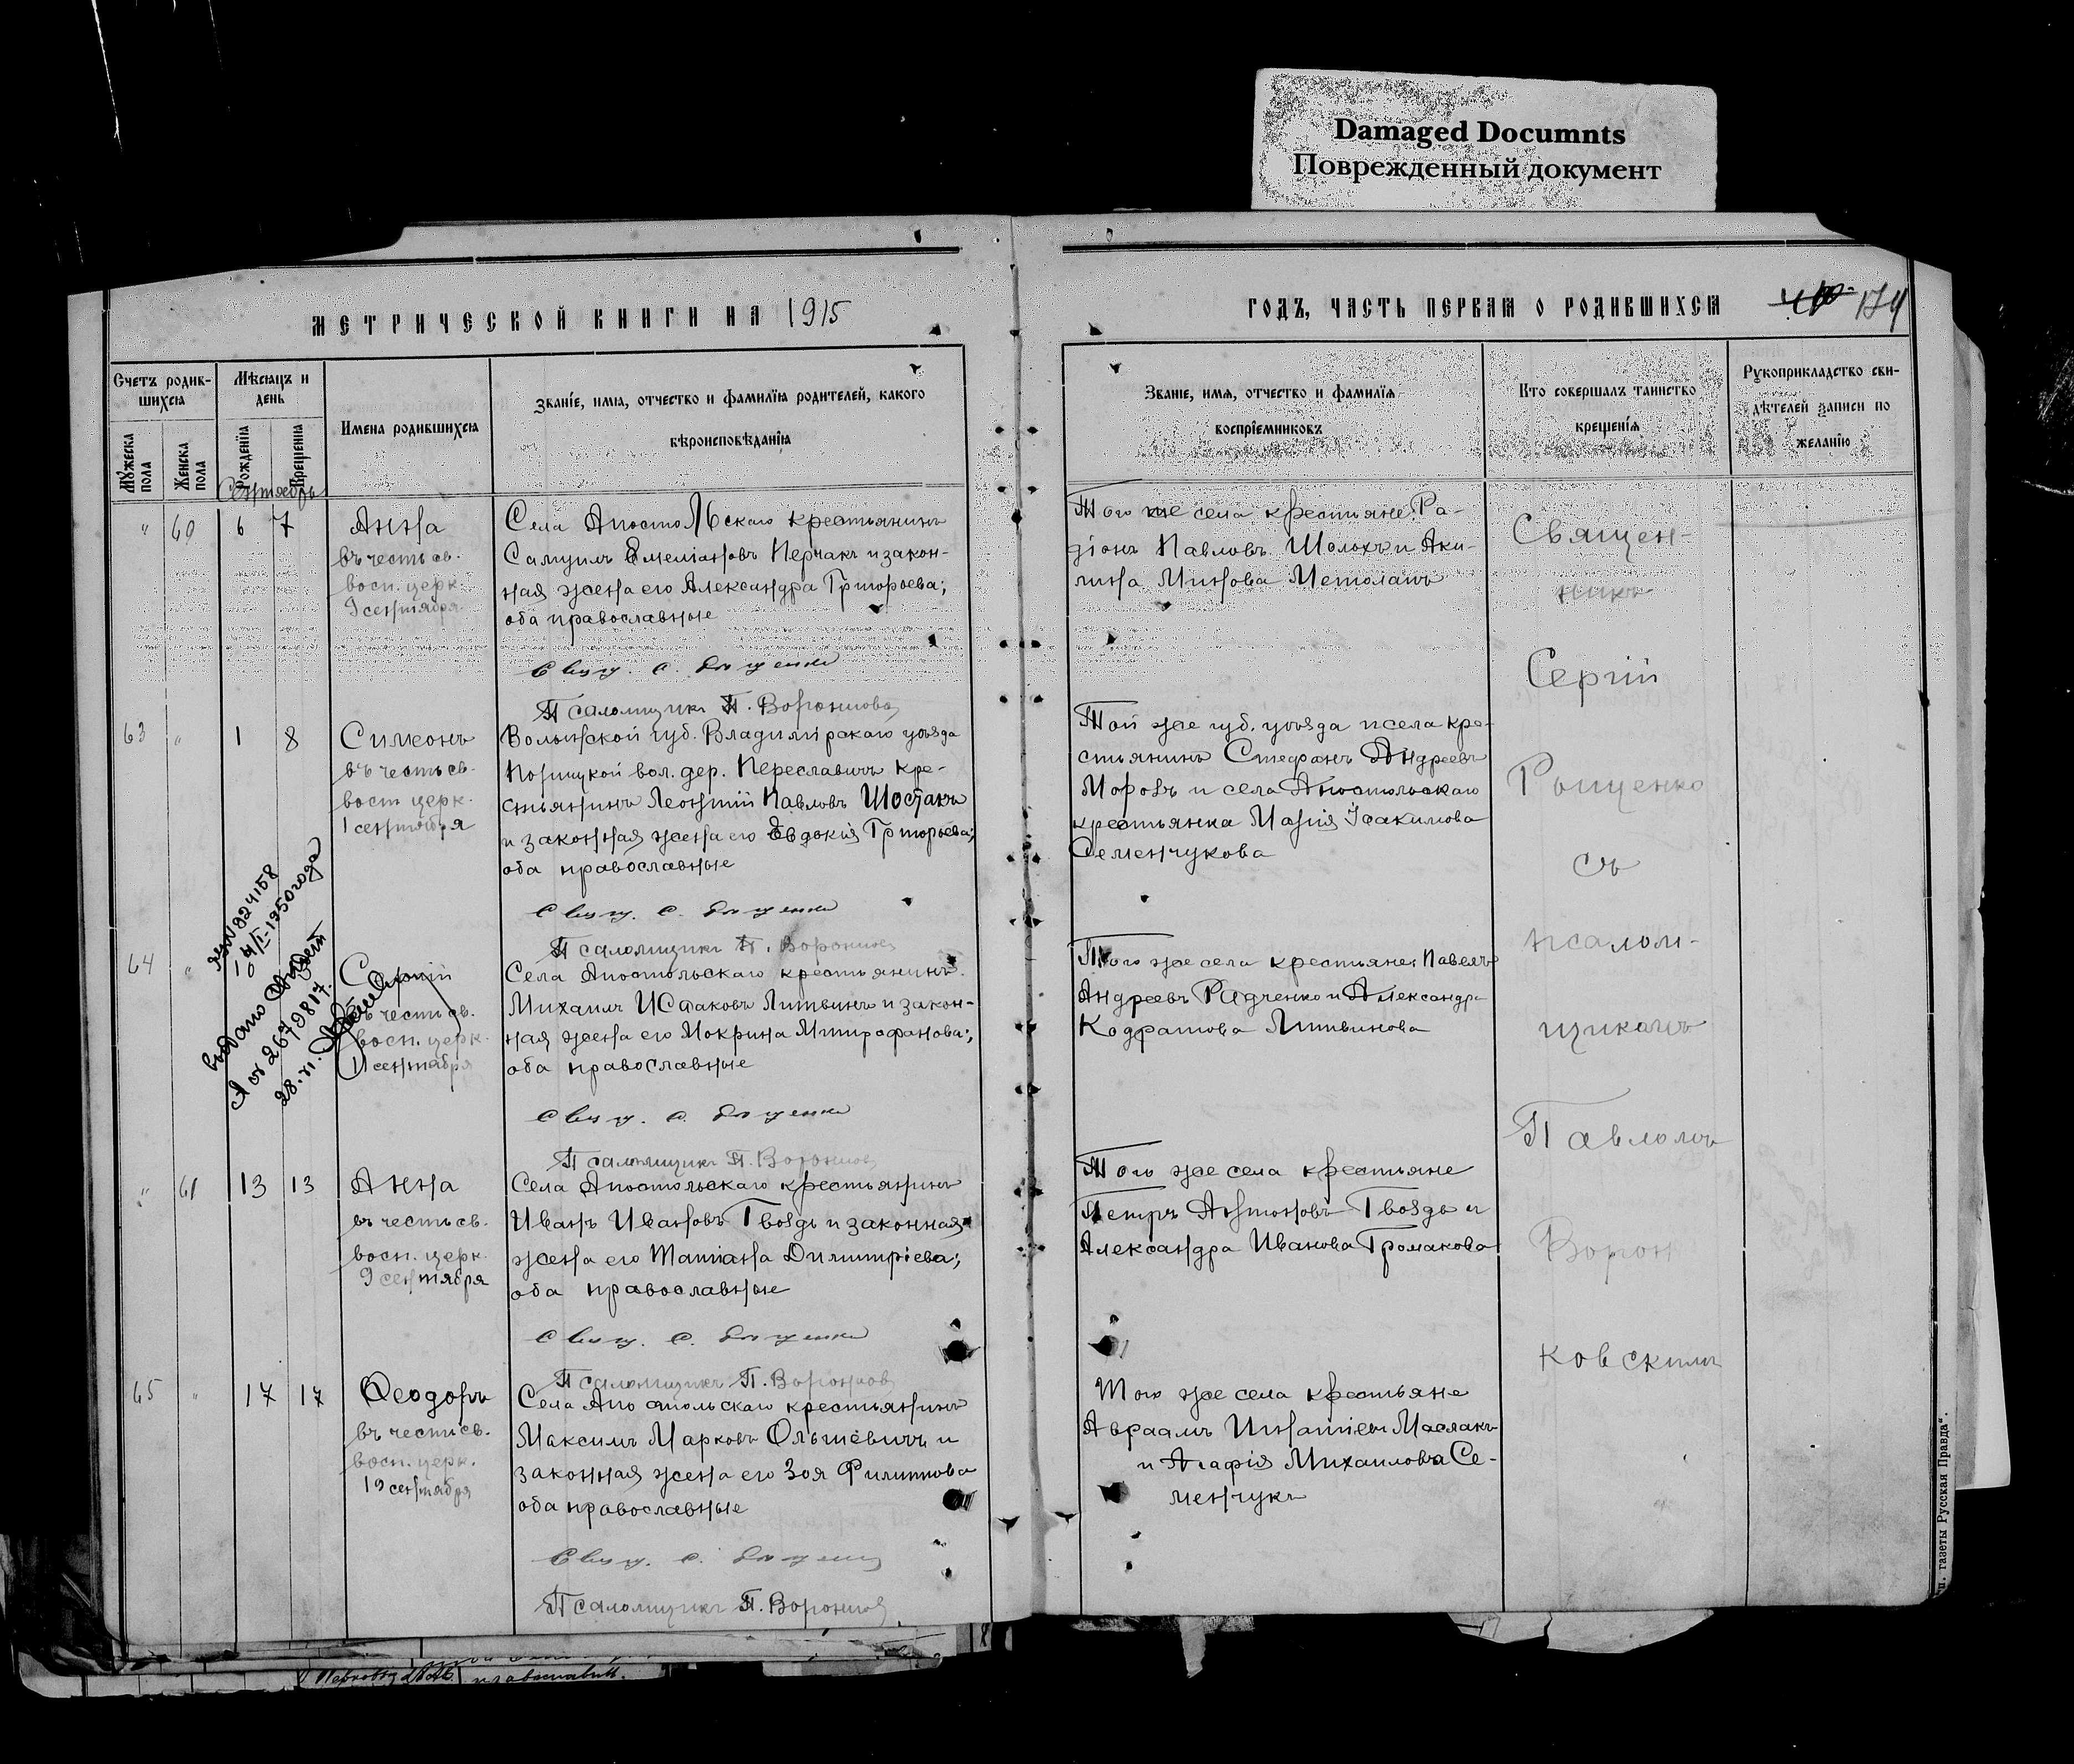 Damaged Documnts
Поврежденный документ
МЕТРИЧЕСКОЙ КНИГИ НА 1915
ГОДЪ, ЧАСТЬ ПЕРВАЯ О РОДИВШИХСЯ 174
Счетъ родив-
шихся
Мужеска пола
Женска пола
Мѣсяцъ и
день
Рожденія
Крещенія
Имена родившихся
Званіе, имя, отчество и фамилія родителей, какого
вѣроисповѣданія
Званіе, имя, отчество и фамилія
воспріемниковъ
Кто совершалъ таинство
крещенія
Рукоприкладство сви-
дѣтелей записи по
желанію
Сентябрь
" 60 6 7 Анна
въ честь св.
восп. церк.
9 сентября
Села Апостольскаго крестьянинъ
Самуилъ Емеліановъ Перчакъ и закон-
ная жена его Александра Григорьева;
оба православные
Свящ. С.
Псаломщикъ П.
Того же села крестьяне: Ра-
діонъ Павловъ Шолохъ и Аки-
лина Минова
63 " 1 8 Симеонъ
въ честь св.
восп. церк.
1 сентября
Волынской губ. Владимірскаго уѣзда
вол. дер. Переславичъ кре-
стьянинъ Леонтій Павловъ Шостакъ
и законная жена его Евдокія Григорьева;
оба православные
Свящ. С.
Псаломщикъ П.
Той же губ. уѣзда и села кре-
стьянинъ Стефанъ Андреевъ
Морозъ и села Апостольскаго
крестьянка Марія Іоакимова
Семенчукова
64 " Сергій
въ честь св.
восп. церк.
сентября
1950 года
выдано
28.VI.
Села Апостольскаго крестьянинъ
Михаилъ Исааковъ Литвинъ и закон-
ная жена его Мокрина Митрофанова;
оба православные
Свящ. С.
Псаломщикъ П.
Того же села крестьяне: Павелъ
Андреевъ Радченко и Александра
Кодратова Литвинова
" 61 13 13 Анна
въ честь св.
восп. церк.
9 сентября
Села Апостольскаго крестьянинъ
Иванъ Ивановъ Гвоздь и законная
жена его Татіана Димитріева;
оба православные
Свящ. С.
Псаломщикъ П.
Того же села крестьяне
Петръ Антоновъ Гвоздь и
Александра Иванова Громакова
65 " 17 17 Ѳеодоръ
въ честь св.
восп. церк.
19 сентября
Села Апостольскаго крестьянинъ
Максимъ Марковъ Ольшевичъ и
законная жена его Зоя Филиппова
оба православные
Свящ. С.
Псаломщикъ П.
Того же села крестьяне
Авраамъ Игнатіевъ Маслакъ
и Агафія Михаилова Се-
менчукъ
Священ-
никъ
Сергій
Рощенко
съ
псалом-
щикомъ
Павломъ
Ворон
ковскимъ
газеты Русская Правда".